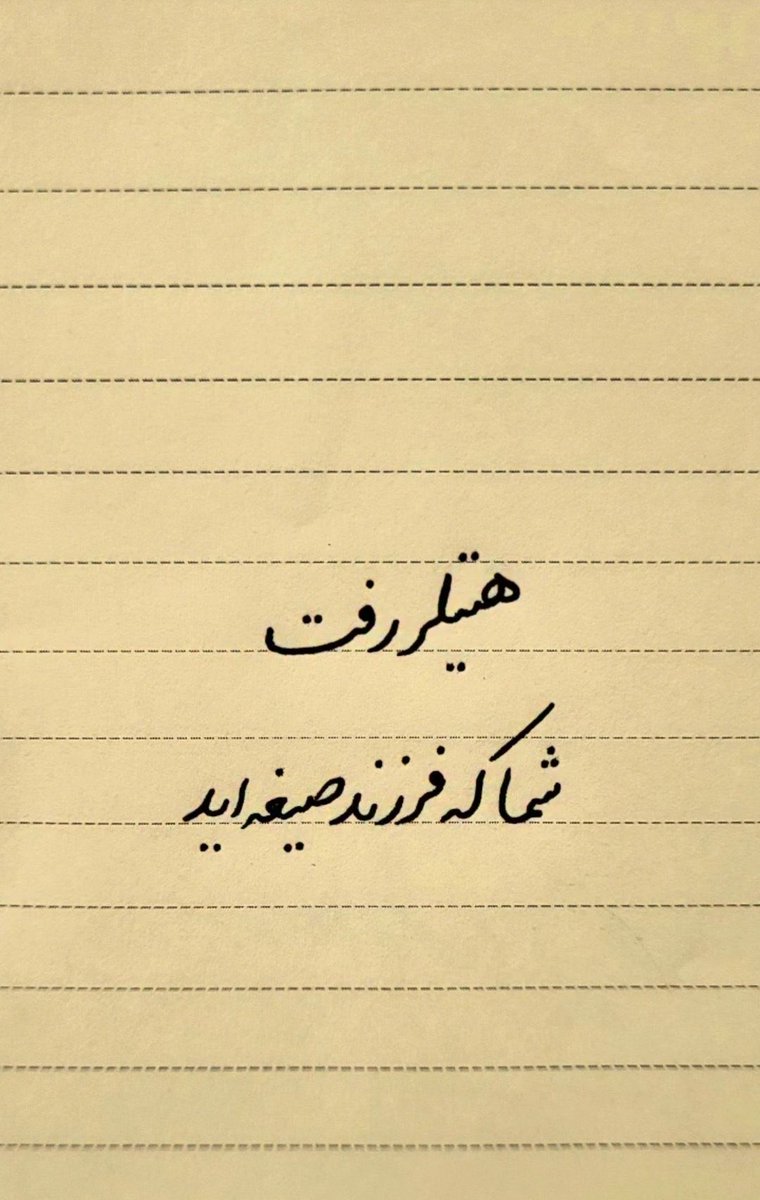 هتیلر رفت
شما که فرزند صیغه اید